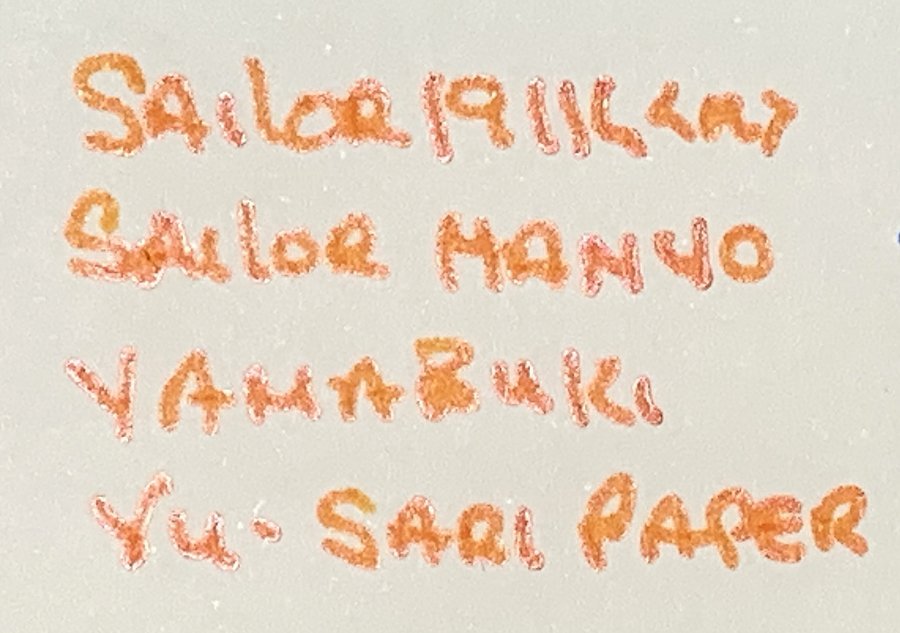 SAiloR 1911
SAiloR MANYO
YAMABUKi
Yu-SARI PAPER